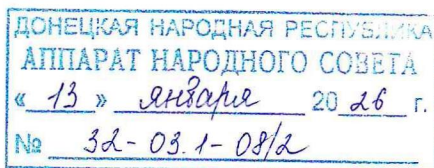 ДОНЕЦКАЯ НАРОДНАЯ РЕСПУБЛИКА
АППАРАТ НАРОДНОГО СОВЕТА
« 13 » января 20 26 г.
№ 32-03.1-08/2